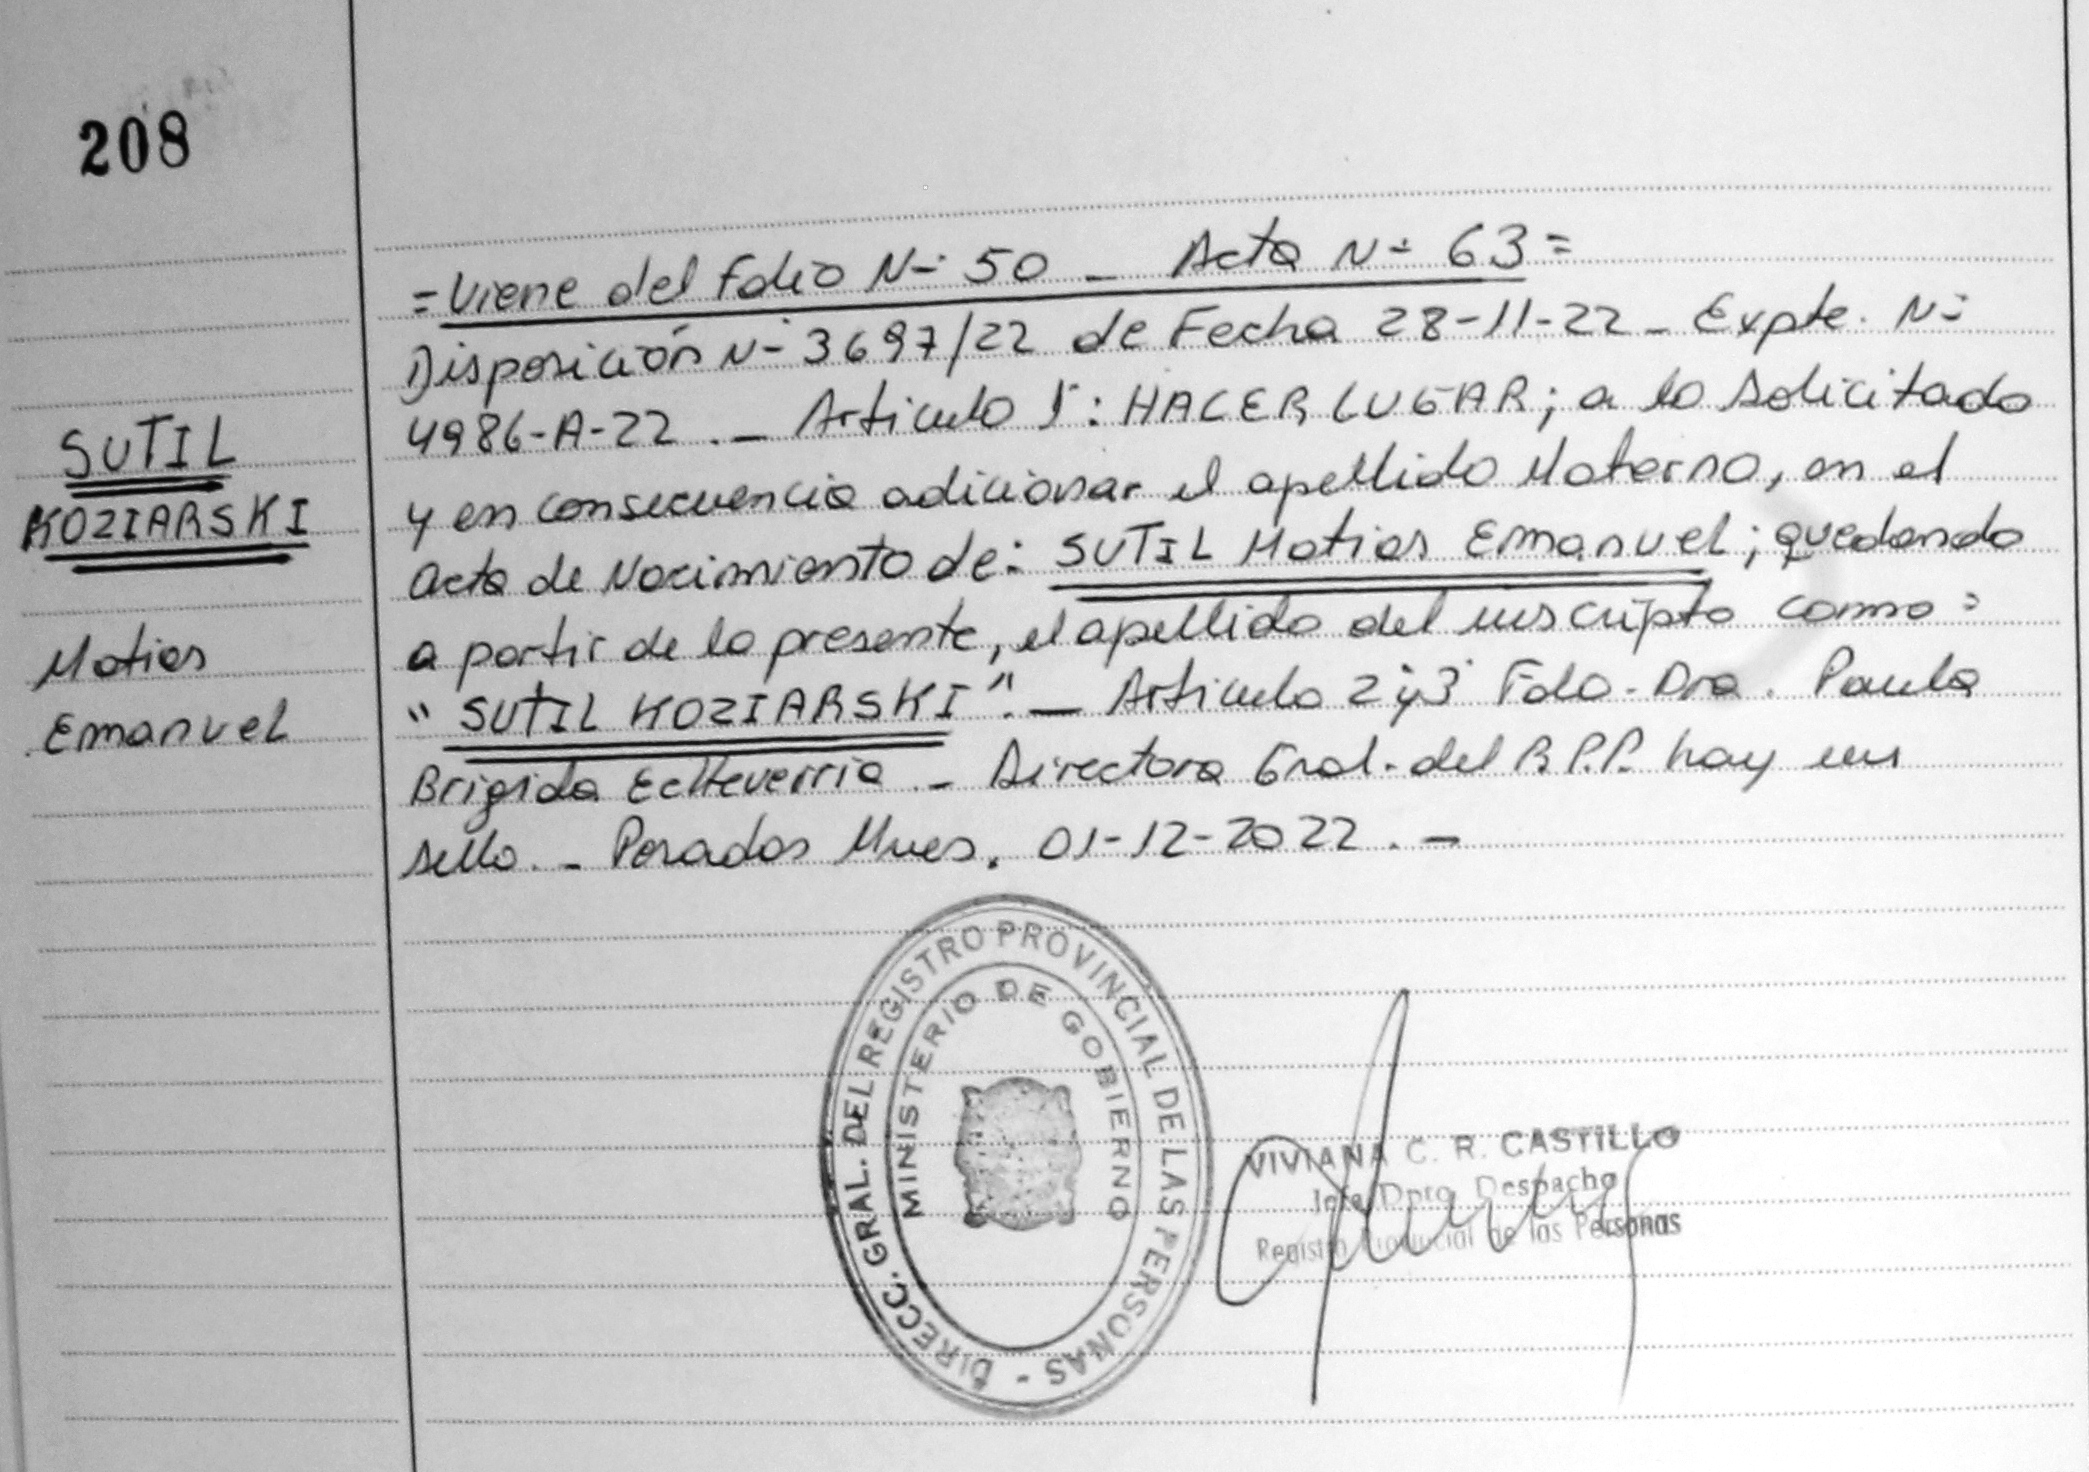 208
SUTIL
KOZIARSKI
Matias
Emanuel
=Viene del Folio N- 50 - Acta N- 63=
Disposición N- 3697/22 de Fecha 28-11-22 - Expte. N-
4986-A-22 .- Articulo 1°: HACER LUGAR; a lo solicitado
y en consecuencia adicionar el apellido Materno, en el
acta de Nacimiento de: SUTIL Matias Emanuel; quedando
a partir de la presente, el apellido del inscripto como:
"SUTIL KOZIARSKI".- Articulo 2 y 3 Fdo. Dra. Paula
Brigida Echeverria .- Directora Gral. del R.P.P. hay un
sello. - Posadas Mnes. 01-12-2022. -
DIRECC. GRAL. DEL REGISTRO PROVINCIAL DE LAS PERSONAS -
MINISTERIO DE GOBIERNO
VIVIANA C. R. CASTILLO
Dpto. Despacho
Registro Provincial de las Personas